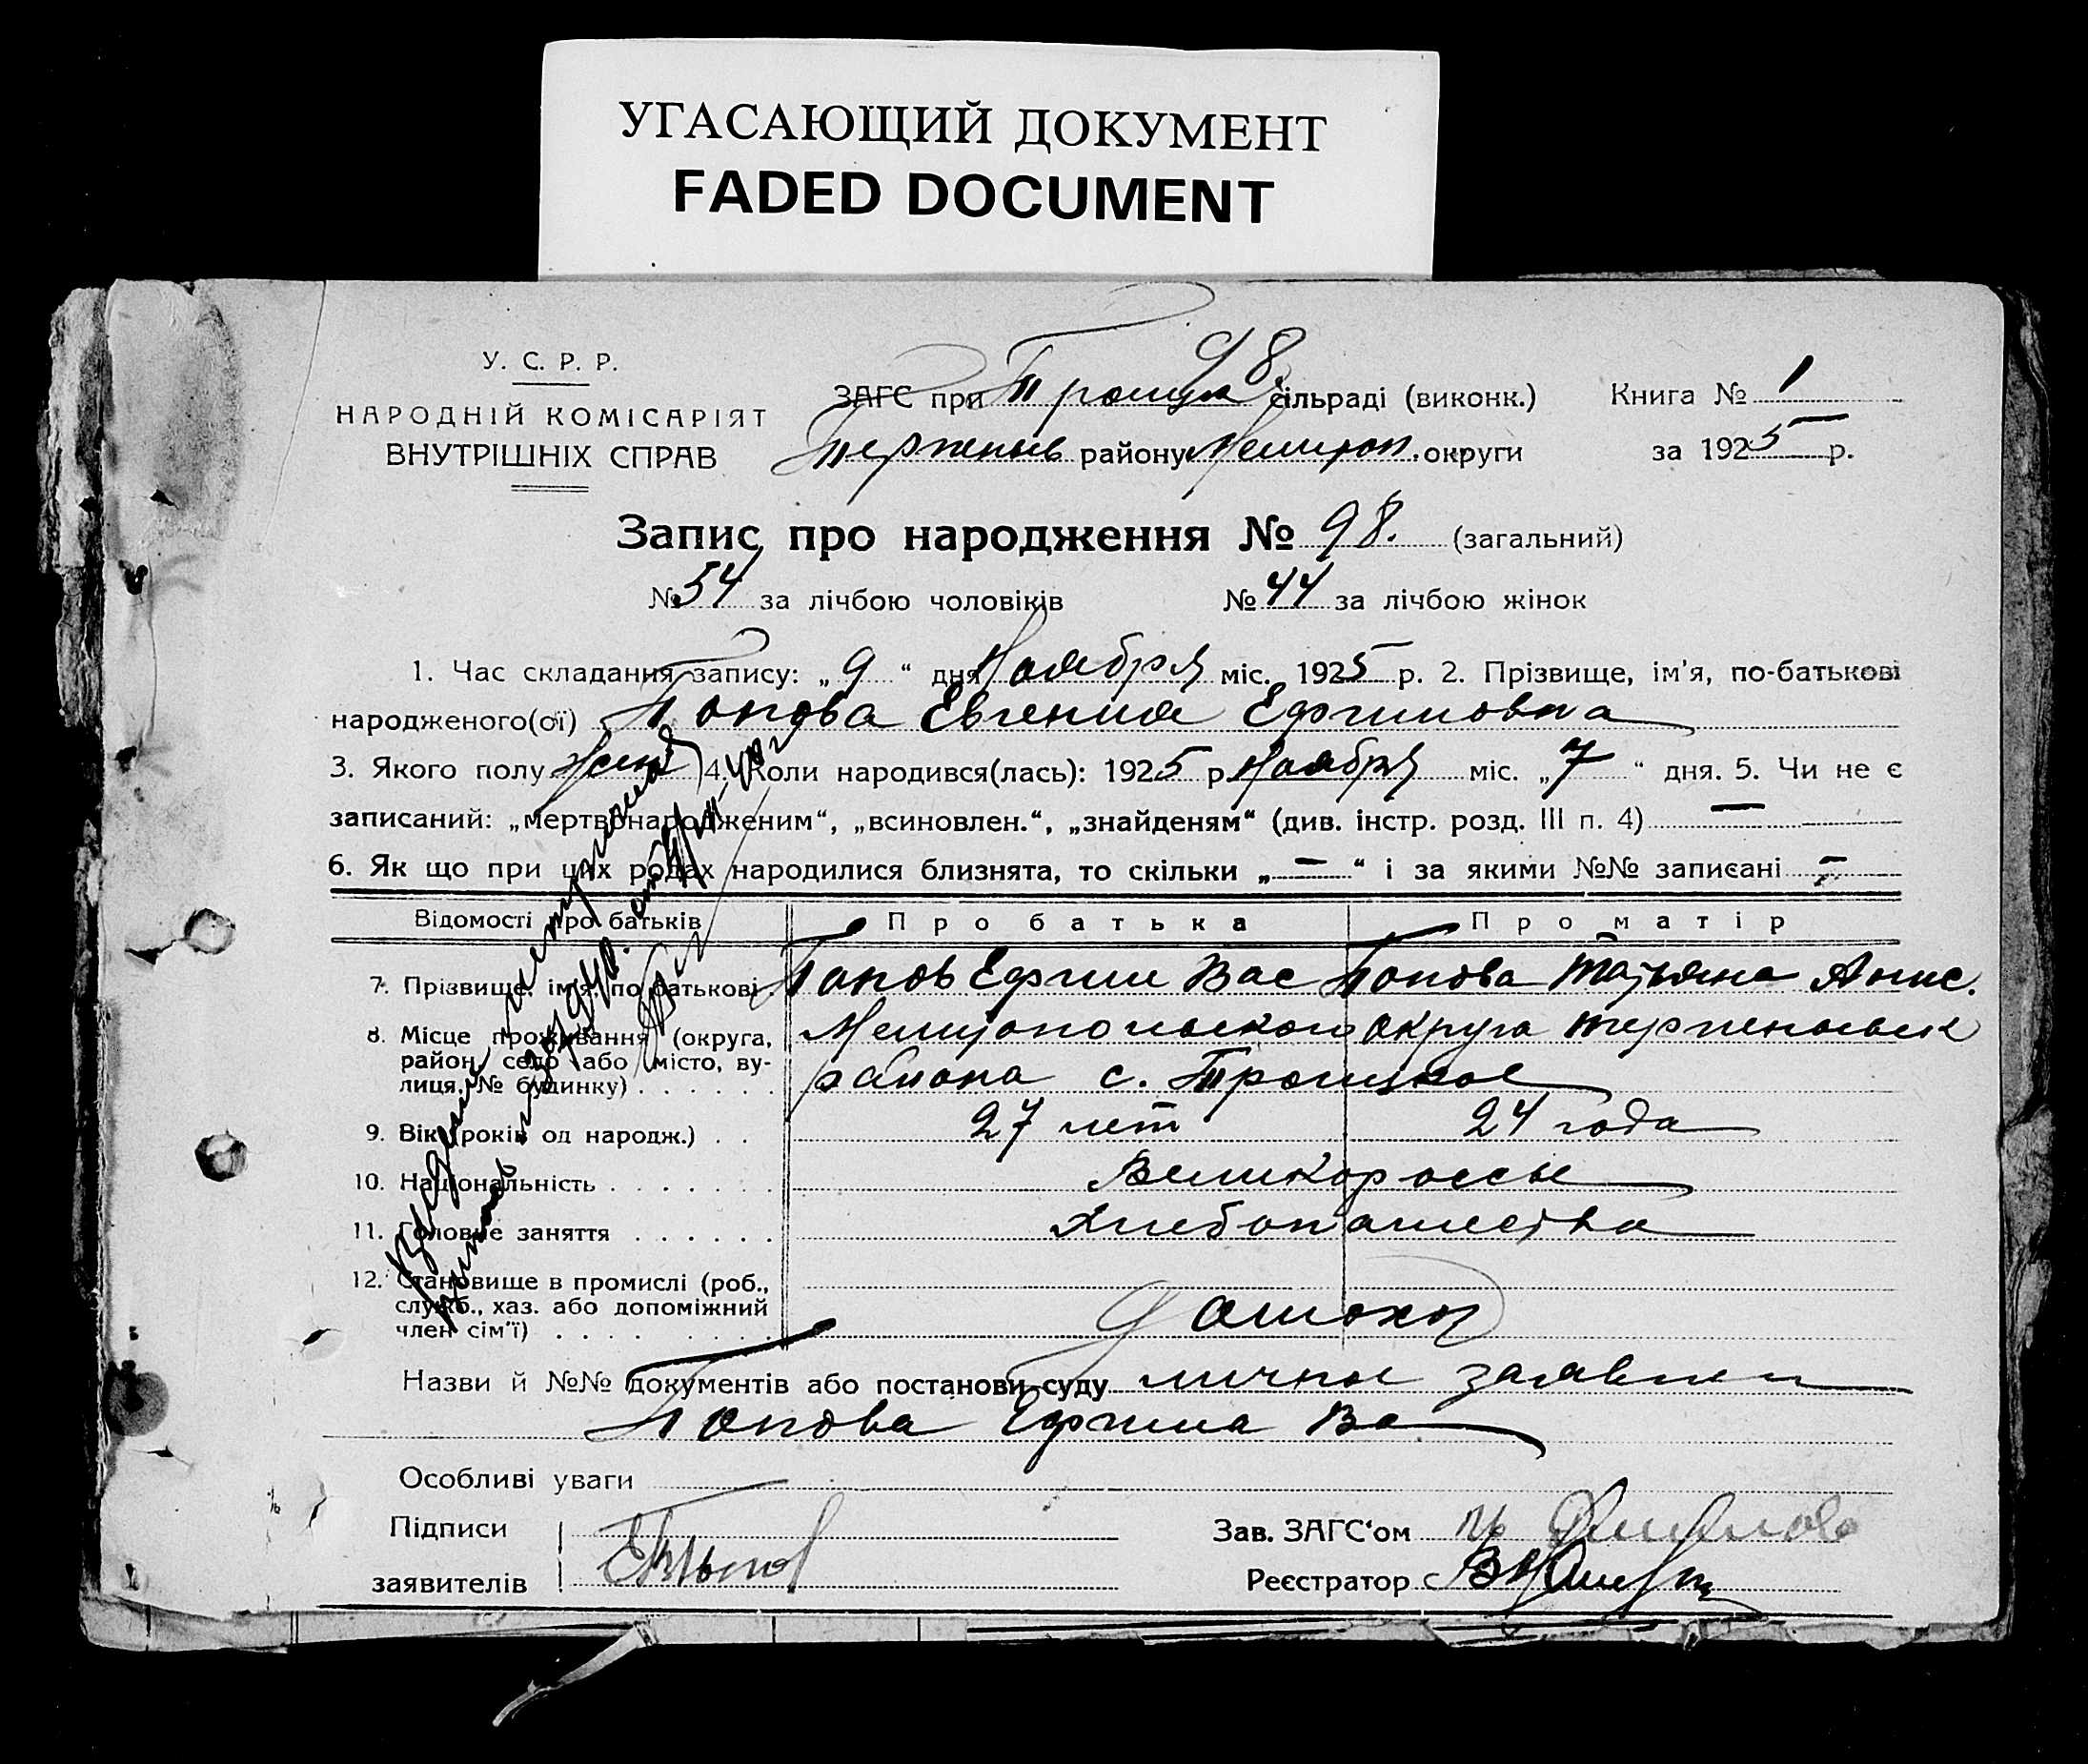 УГАСАЮЩИЙ ДОКУМЕНТ
FADED DOCUMENT
98
У. С. Р. Р.
НАРОДНІЙ КОМІСАРІЯТ
ВНУТРІШНІХ СПРАВ
ЗАГС при Троицк сільраді (виконк.)
Терпеньев району Мелитоп. округи
Книга № 1
за 1925 р.
Запис про народження № 98. (загальний)
№ 54 за лічбою чоловіків № 44 за лічбою жінок
1. Час складання запису: „ 9 “ дня Ноября міс. 1925 р. 2. Прізвище, ім'я, по-батькові
народженого(ої) Попова Евгения Ефимовна
3. Якого полу жен 4. Коли народився(лась): 1925 р. Ноября міс. „ 7 “ дня. 5. Чи не є
записаний: „мертвонародженим“, „всиновлен.“, „знайденям“ (див. інстр. розд. III п. 4) —
6. Як що при цих родах народилися близнята, то скільки „ — “ і за якими №№ записані —
Відомості про батьків Про батька Про матір
7. Прізвище, ім'я, по батькові Попов Ефим Вас Попова Татьяна Анис.
8. Місце проживання (округа, район, село або місто, вулиця, № будинку) Мелитопольского округа Терпеньевск
района с. Троицкое
9. Вік (років од народж.) 27 лет 24 года
10. Національність Великороссы
11. Головне заняття Хлебопашества
12. Становище в промислі (роб., служб., хаз. або допоміжний член сім'ї)
Назви й №№ документів або постанови суду личное заявлен
Попова Ефима Ва
Особливі уваги
Підписи
заявителів
Зав. ЗАГС'ом
Реєстратор
Выдано метрика